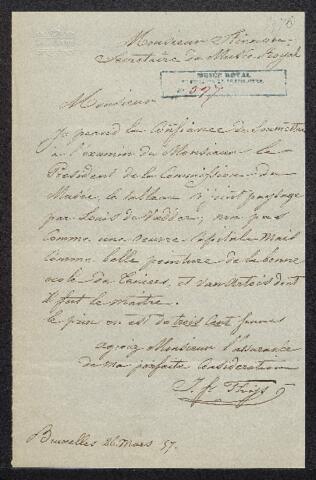 Monsieur
Secrétaire du Musée Royal
MUSÉE ROYAL
597
Monsieur
Je prend la Confiance de soumettre
a l'examin de Monsieur le
President de la Commission du
Musée, le tableau ci joint paysage
par Louis de Vadder, non pas
comme une œuvre Capitale Mais
comme belle peinture de la bonne
ecole de Teniers, et d'Artois dont
il fut le maitre.
le prix en est de trois Cent francs
agréez Monsieur l'assurance
de ma parfaite Consideration
Bruxelles 26 Mars 57.